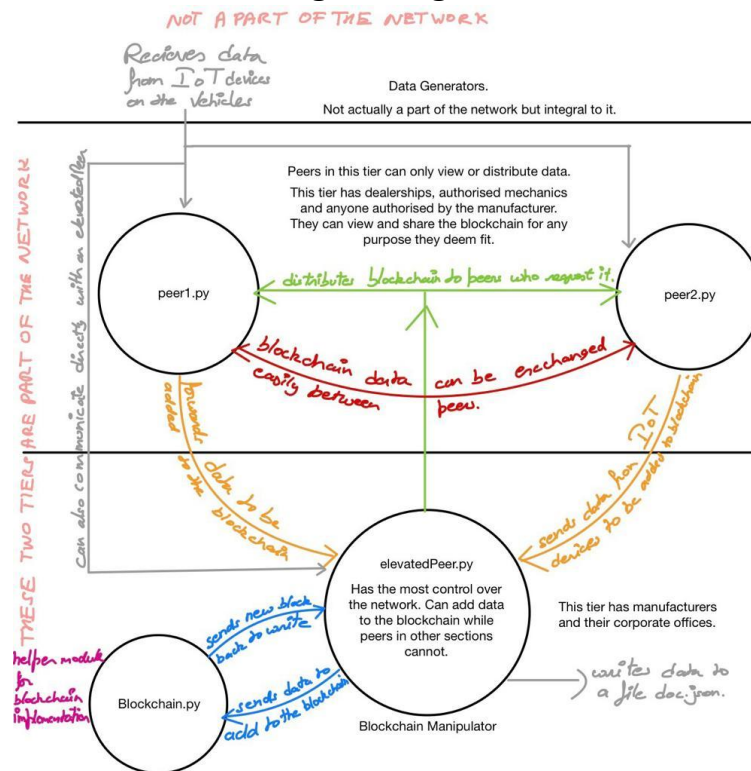 NOT A PART OF THE NETWORK
Recieves data
from IoT devices
on the vehicles
Data Generators.
Not actually a part of the network but integral to it.
THESE TWO TIERS ARE PART OF THE NETWORK
can also communicate directly with an elevatedPeer
Peers in this tier can only view or distribute data.
This tier has dealerships, authorised mechanics
and anyone authorised by the manufacturer.
They can view and share the blockchain for any
purpose they deem fit.
peer1.py
distributes blockchain to peers who request it.
peer2.py
blockchain data can be exchanged
easily between peers.
forwards data to be
added to the blockchain
sends data from IoT
devices to be added to blockchain
elevatedPeer.py
Has the most control over
the network. Can add data
to the blockchain while
peers in other sections
cannot.
This tier has manufacturers
and their corporate offices.
sends new block
back to write
helper module
for
blockchain
implementation
Blockchain.py
sends data to
add to the blockchain
writes data to
a file doc.json.
Blockchain Manipulator